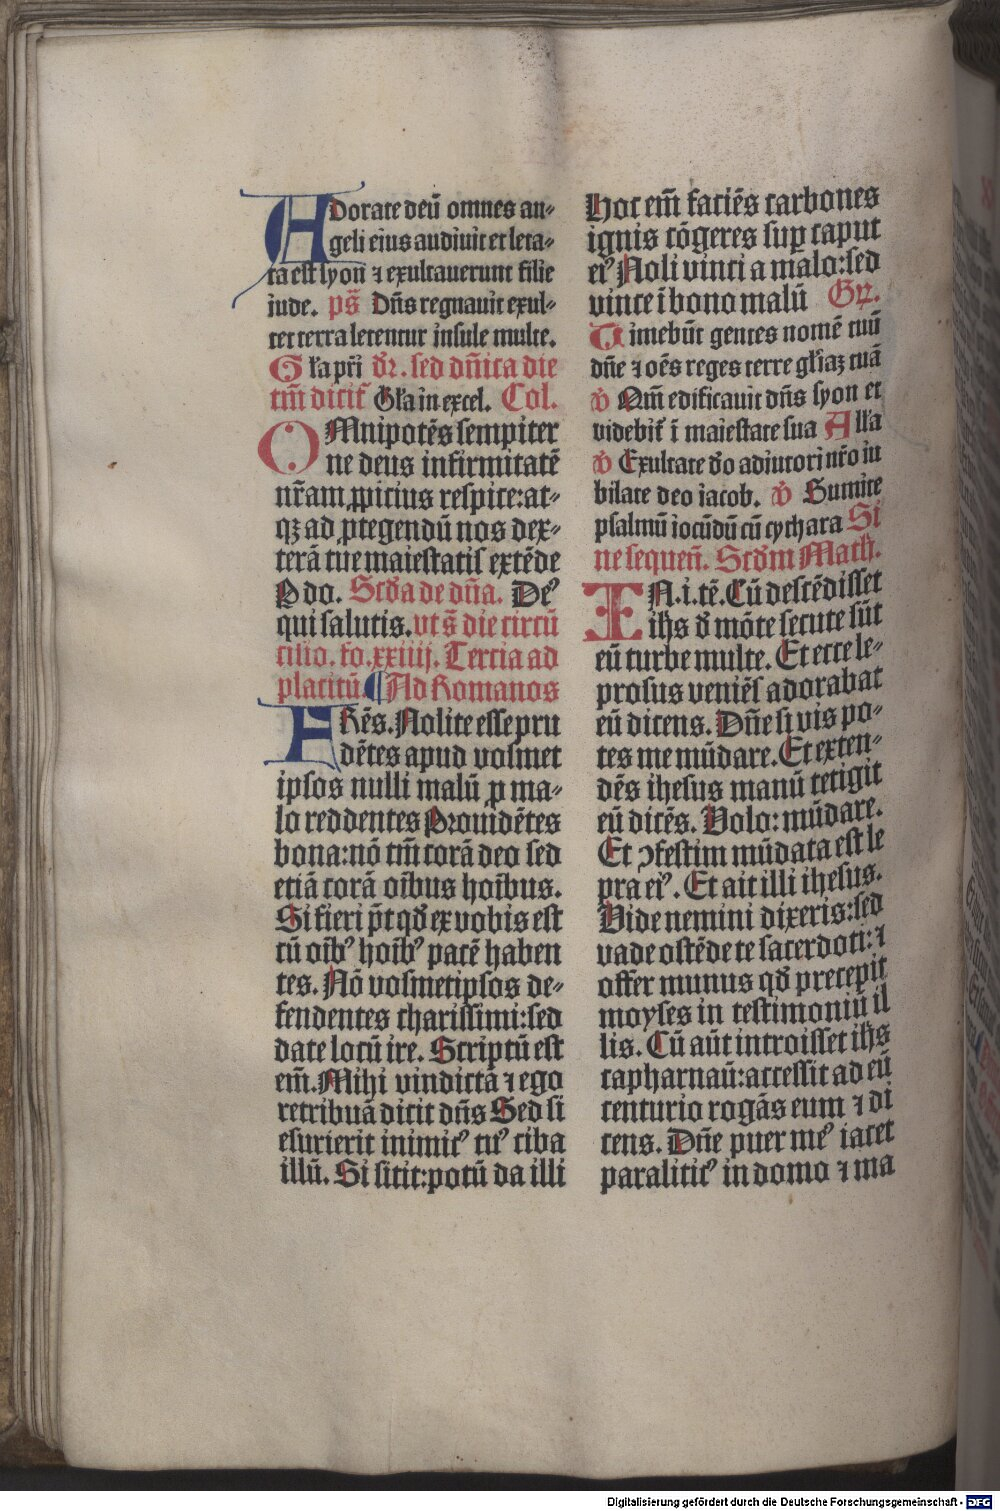 Adorate deū omnes an⸗
geli eius audiuit et leta⸗
ta est syon ⁊ exultauerunt filie
iude. ps̄ Dn̄s regnauit exul⸗
tet terra letentur insule multe.
Gl̄a pr̄i dr̄. sed dn̄ica die
tm̄ dicit᷒ Gl̄a in excel. Col.
OMnipotēs sempiter
ne deus infirmitatē
nr̄am ꝓpicius respice:at⸗
qꝫ ad ꝓtegendū nos dex⸗
terā tue maiestatis extēde
P do. Scd̄a de dn̄a. Deꝰ
qui salutis. vt s̄ die circū
cisio. fo. xxiiij. Tercia ad
placitū ¶ Ad Romanos
FRēs. Nolite esse pru
dētes apud vosmet
ipsos nulli malū ꝓ ma⸗
lo reddentes Prouidētes
bona:nō tm̄ corā deo sed
etiā corā oībus hoībus.
Si fieri pt̄ qd̄ ex vobis est
cū oībꝰ hoībꝰ pacē haben
tes. Nō vosmetipsos de⸗
fendentes charissimi:sed
date locū ire. Scriptū est
em̄. Mihi vindictā ⁊ ego
retribuā dicit dn̄s Sed si
esurierit inimicꝰ tuꝰ ciba
illū. Si sitit:potū da illi
hoc em̄ faciēs carbones
ignis cōgeres suꝑ caput
eiꝰ Noli vinci a malo:sed
vince ī bono malū Gr̄.
Timebūt gentes nomē tuū
dn̄e ⁊ oēs reges terre gl̄iaꝫ tuā
v̄ Qm̄ edificauit dn̄s syon et
videbit᷒ ī maiestate sua All̄a
v̄ Exultate deo adiutori nr̄o iu
bilate deo iacob. v̄ Sumite
psalmū iocūdū cū cythara Si
ne sequen̄. Scd̄m Math̄.
IN. i. tē. Cū descēdisset
ih̄s d̄ mōte secute sūt
eū turbe multe. Et ecce le⸗
prosus veniēs adorabat
eū dicens. Dn̄e si vis po⸗
tes me mūdare. Et exten⸗
dēs ihesus manū tetigit
eū dicēs. Volo: mūdare.
Et ↄfestim mūdata est le
pra eiꝰ. Et ait illi ihesus.
Vide nemini dixeris:sed
vade ostēde te sacerdoti: ⁊
offer munus qd̄ precepit
moyses in testimoniū il
lis. Cū aūt introisset ih̄s
capharnaū:accessit ad eū
centurio rogās eum ⁊ di
cens. Dn̄e puer meꝰ iacet
paraliticꝰ in domo ⁊ ma
Digitalisierung gefördert durch die Deutsche Forschungsgemeinschaft - DFG